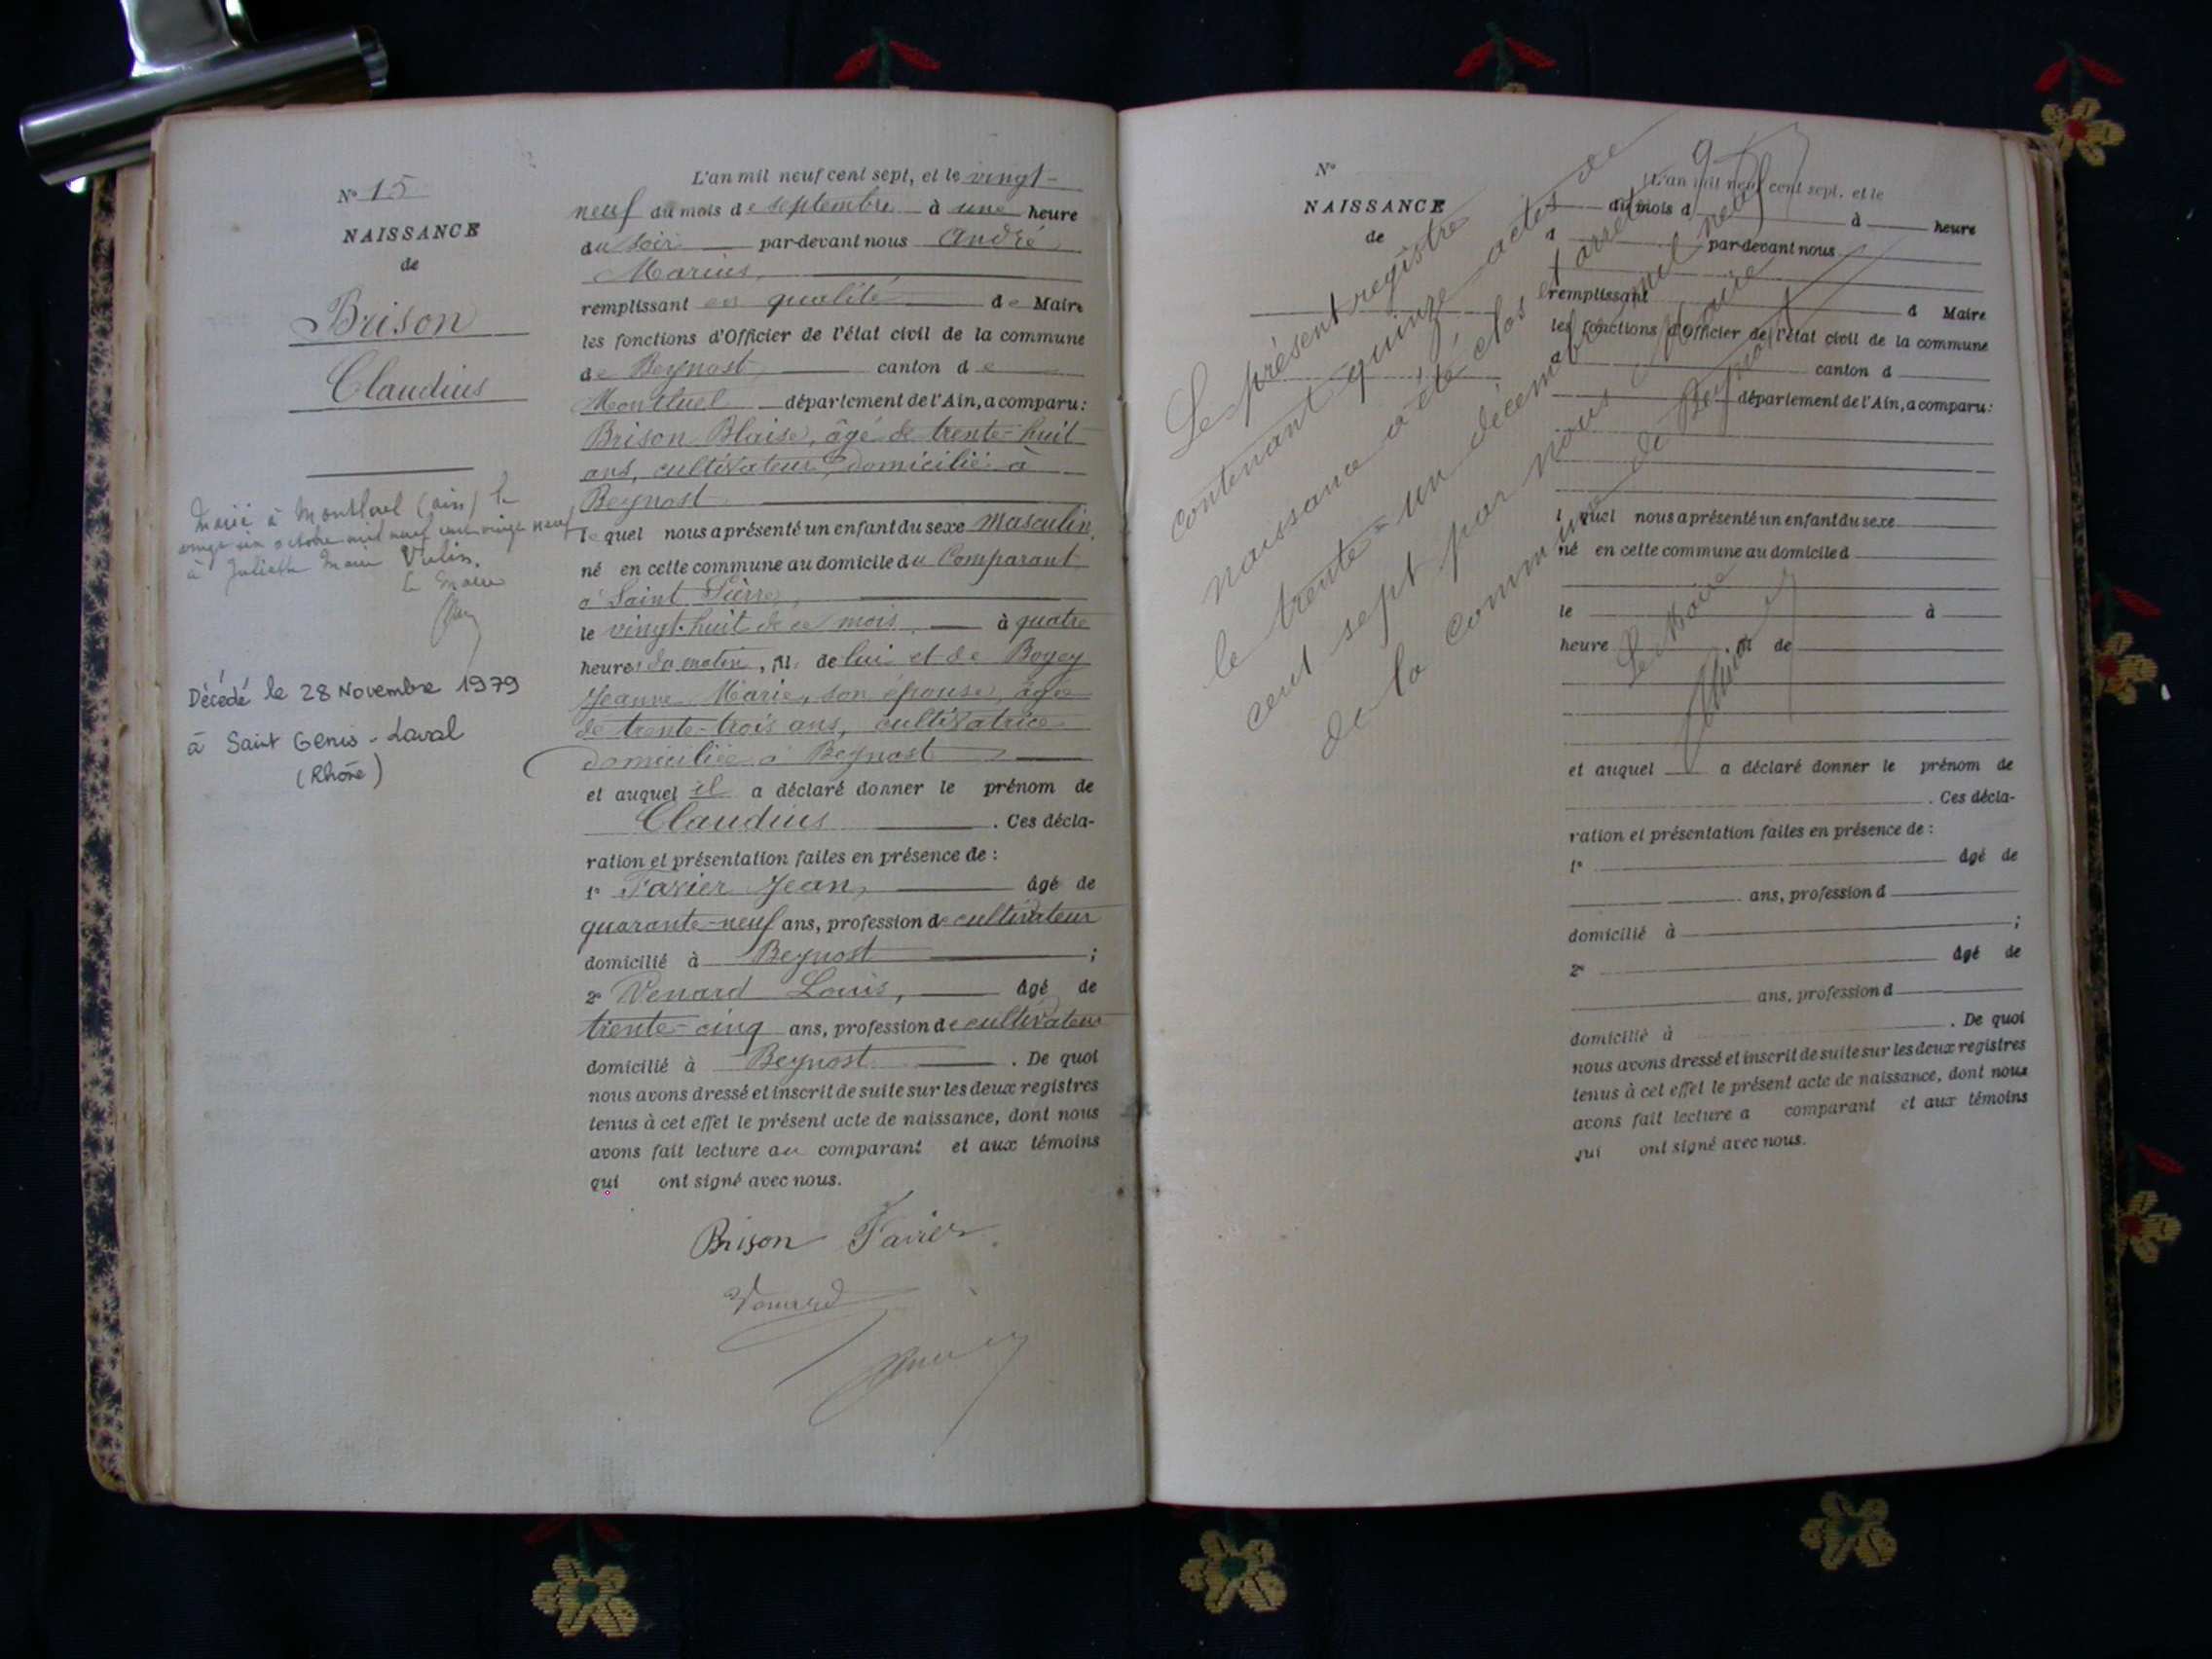 N° 15
NAISSANCE
de
Brison
Claudius
Marié à Montluel (ain) le
vingt six octobre mil neuf cent vingt neuf
à Juliette Marie Vulin.
Le Maire
Décédé le 28 Novembre 1979
à Saint Genis-Laval
(Rhône)
L'an mil neuf cent sept, et le vingt-
neuf du mois de septembre à une heure
du soir par-devant nous André
Marius,
remplissant en qualité de Maire
les fonctions d'Officier de l'état civil de la commune
de Beynost, canton de
Montluel département de l'Ain, a comparu:
Brison Blaise, âgé de trente-huit
ans, cultivateur, domicilié à
Beynost
lequel nous a présenté un enfant du sexe masculin,
né en cette commune au domicile du Comparant
à Saint Pierre,
le vingt-huit de ce mois, à quatre
heures du matin, fils de lui et de Bogey
Jeanne Marie, son épouse, âgée
de trente-trois ans, cultivatrice
domiciliée à Beynost
et auquel il a déclaré donner le prénom de
Claudius. Ces décla-
ration et présentation failes en présence de :
1° Favier Jean, âgé de
quarante-neuf ans, profession de cultivateur
domicilié à Beynost ;
2° Venard Louis, âgé de
trente-cinq ans, profession de cultivateur
domicilié à Beynost. De quoi
nous avons dressé et inscrit de suite sur les deux registres
tenus à cet effet le présent acte de naissance, dont nous
avons fait lecture au comparant et aux témoins
qui ont signé avec nous.
Brison Favier
Venard
N°
NAISSANCE
de
Le présent registre
contenant quinze actes de
naissance a été clos et arrêté
le trente-un décembre mil neuf
cent sept par nous Maire
de la commune de Beynost
Le Maire
L'an mil neuf cent sept, et le
du mois d à heure
d par-devant nous
remplissant d Maire
les fonctions d'Officier de l'état civil de la commune
d canton d
département de l'Ain, a comparu:
l quel nous a présenté un enfant du sexe
né en cette commune au domicile d
le à
heure fil de
et auquel a déclaré donner le prénom de
. Ces décla-
ration et présentation failes en présence de :
1° âgé de
ans, profession d
domicilié à ;
2° âgé de
ans, profession d
domicilié à . De quoi
nous avons dressé et inscrit de suite sur les deux registres
tenus à cet effet le présent acte de naissance, dont nous
avons fait lecture a comparant et aux témoins
qui ont signé avec nous.